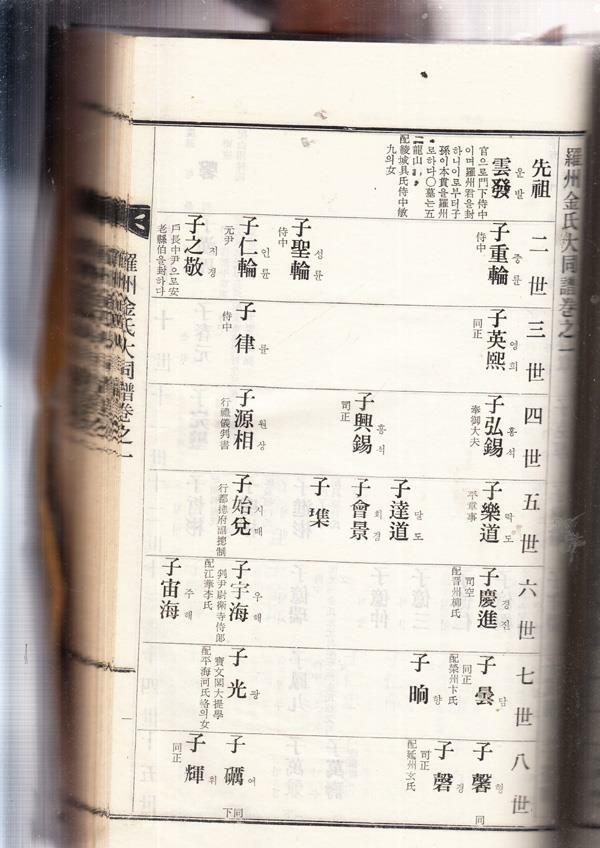 羅州金氏大同譜卷之一
先祖
雲發 운발
官으로門下侍中
이며羅州君을封
하니이로부터子
孫이本貫을羅州
로하다〇墓는五
龍山
配綾城具氏侍中敏
九의女
二世
子重輪 중륜
侍中
子聖輪 성륜
侍中
子仁輪 인륜
元尹
子之敬 지경
戶長中尹으로安
老縣伯을封하다
三世
子英熙 영희
同正
子律 률
侍中
四世
子弘錫 홍석
奉御大夫
子興錫 흥석
司正
子源相 원상
行禮儀判書
五世
子樂道 락도
平章事
子達道 달도
子會景 회경
子
子始 시매
行都摠府副摠制
六世
子慶進 경진
司空
配晋州柳氏
子宇海 우해
判尹尉衛寺侍郎
配江華李氏
子宙海 주해
七世
子曇 담
同正
配榮州卞氏
子晌 향
子光 광
寶文閣大提學
配平海河氏恪의女
八世
子馨 형
同
子磬 경
司正
配延州玄氏
子礪 여
同下
子輝 휘
同正
羅州金氏大同譜卷之一
一